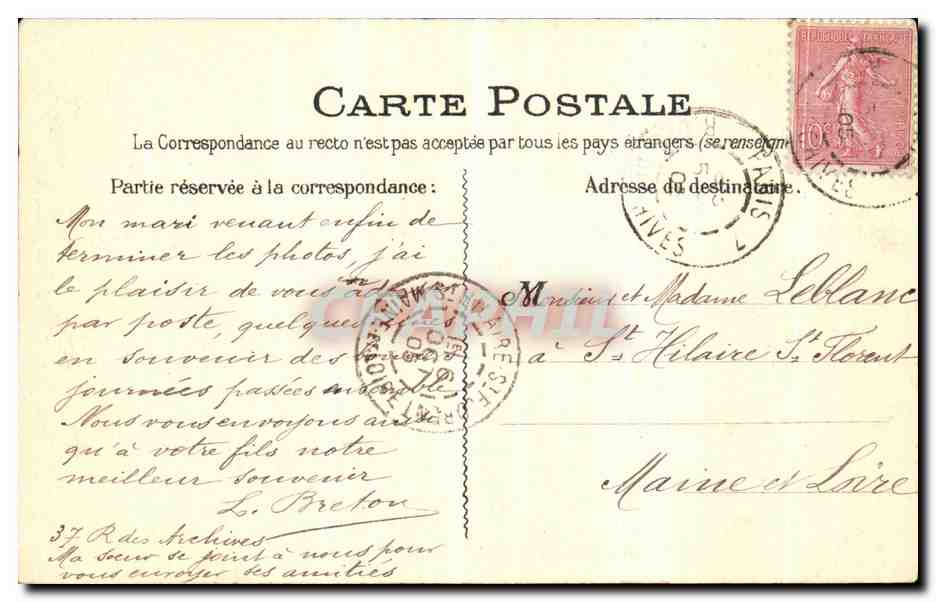 CARTE POSTALE
La Correspondance au recto n'est pas acceptée par tous les pays étrangers (se renseigne
Partie réservée à la correspondance :
Mon mari venant enfin de
terminer les photos, j'ai
le plaisir de vous
par poste, quelques
en souvenir des
journées passées ensemble
Nous vous envoyons
qu'à votre fils notre
meilleur souvenir
L. Breton
37 R des Archives
Ma soeur se joint à nous pour
vous envoyer ses amitiés
Adresse du destinataire.
Monsieur et Madame Leblanc
à St Hilaire St Florent
Maine et Loire
REPUBLIQUE FRANÇAISE
10
PARIS
ST HILAIRE ST FLORENT
MAINE-ET-LOIRE
CPAPHIL